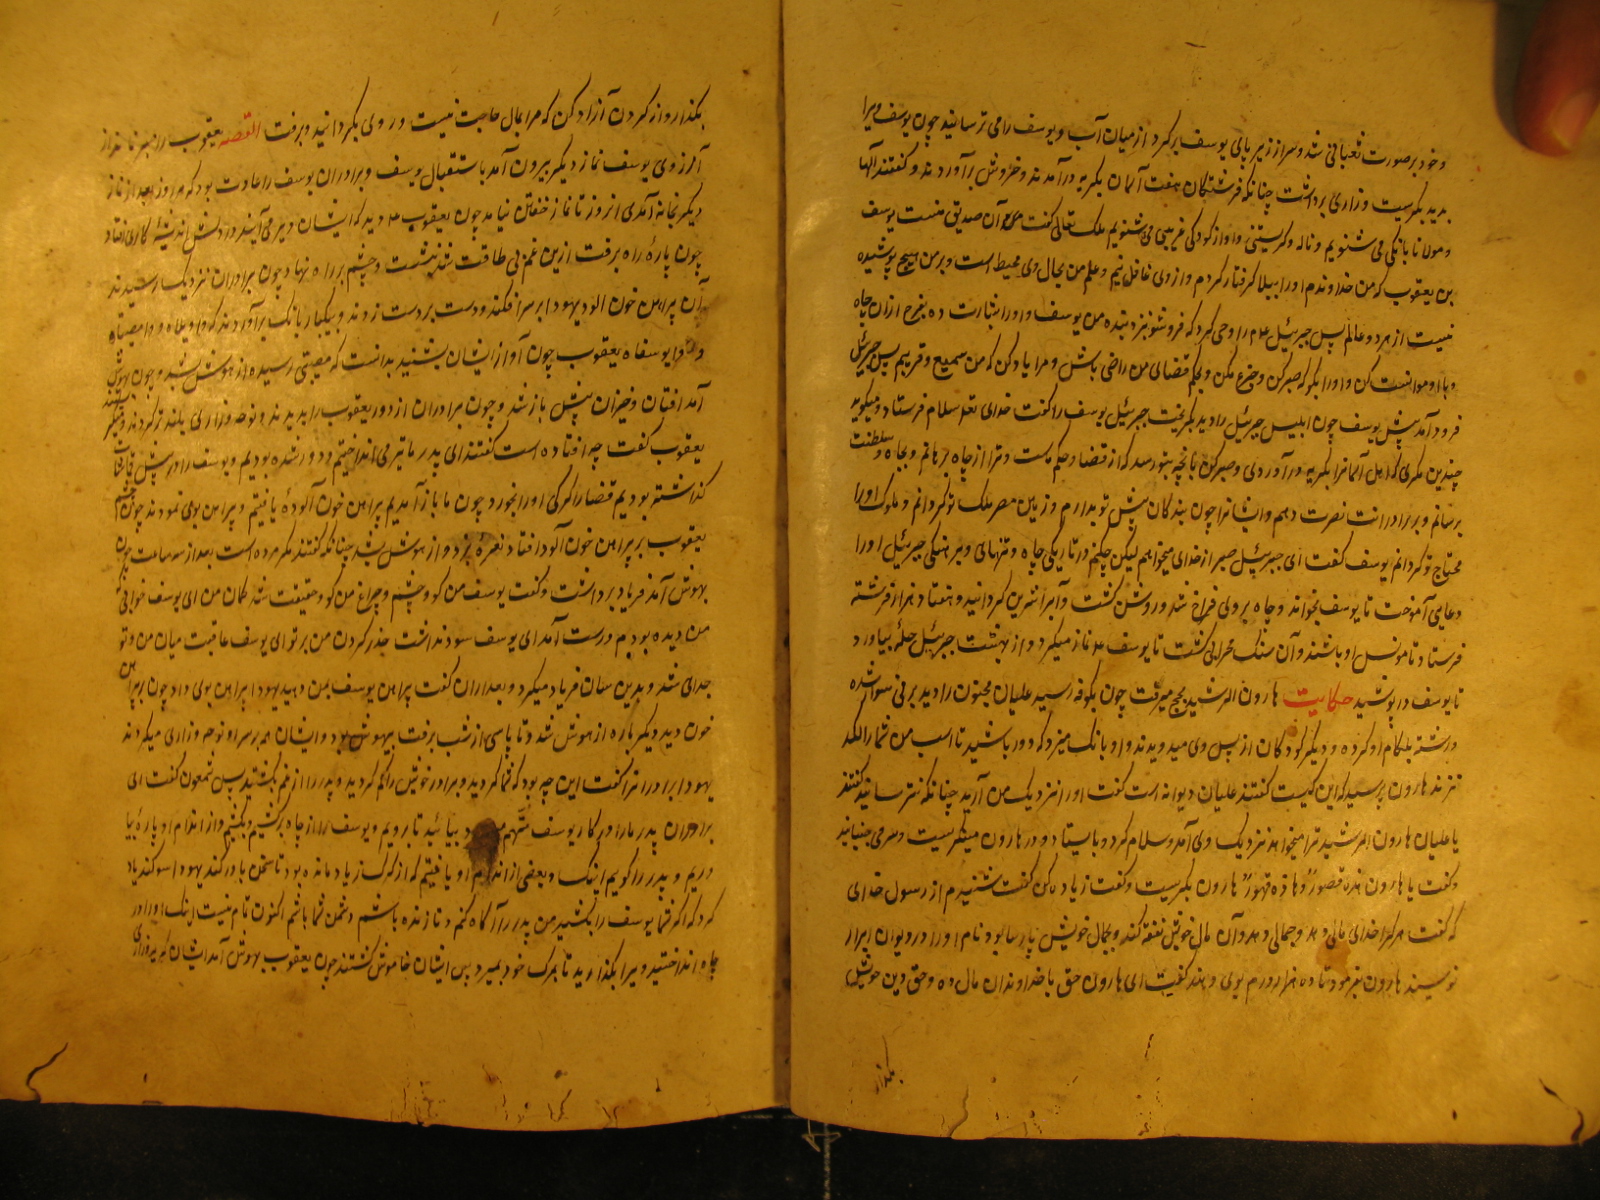 و خود بر صورت ثعبانی شد و سر از زیر پای یوسف بر کرد از میان آب و یوسف را می ترسانید چون یوسف ویرا
بدید بگریست و زاری برداشت چنانکه فرشتگان هفت آسمان بگریه در آمدند و خروش برآوردند و گفتند الها
و مولانا بانکی می شنویم و ناله و گریستنی و آواز کودکی غریبی می شنویم ملک تعالی گفت آن صدیق منست یوسف
بن یعقوب که من خداوندم او را ببلا گرفتار کردم و از وی غافل نیم و علم من بحال وی محیط است و بر من هیچ پوشیده
نیست از هر دو عالم پس جبرئیل علم را وحی کرد که فرو شو بنزد بنده من یوسف و او را بشارت ده بفرج از آن چاه
و با او موانست کن و او را بگو که صبر کن و جزع مکن و بحکم قضای من راضی باش و مرا یاد کن که من سمیع و قریبم پس جبرئیل
فرود آمد پیش یوسف چون ابلیس جبرئیل را دید بگریخت جبرئیل یوسف را گفت خدای تعا سلام فرستاد و میگوید
چندین مگری که اهل آسمانرا بگریه در آوردی و صبر کن بآنچه بتو رسد که از قضا و حکم ماست و ترا از چاه برهانم و بجاه و سلطنت
برسانم و بر برادرانت نصرت دهم و ایشانرا چون بندگان پیش تو بدارم و زمین مصر ملک تو گردانم و ملوک او را
محتاج تو گردانم یوسف گفت ای جبرئیل صبر از خدای میخواهم لیکن چکنم در تاریکی چاه و تنهائی و برهنگی جبرئیل او را
دعایی آموخت تا یوسف بخواند و چاه بر وی فراخ شد و روشن گشت و آبرا شیرین گردانید و هفتاد هزار فرشته
فرستاد تا مونس او باشند و آن سنگ محرابی گشت تا یوسف علا نماز میکرد و از بهشت جبرئیل حله بیاورد
تا یوسف در پوشید حکایت هارون الرشید بحج میرفت چون بکوفه رسید علیان مجنون را دید بر نی سوار شده
و رشته بلکام او کرده و دیگر کودکان از پس وی میدویدند و او بانک میزد که دور باشید تا اسب من شما را لکد
نزند هارون پرسید که این کیست گفتند علیان دیوانه است گفت او را نزدیک من آرید چنانکه نترسانید گفتند
یا علیان هارون الرشید ترا میخواهد نزدیک وی آمد و سلام کرد و بایستاد و در هارون مینگریست و سر می جنبانید
و گفت یا هارون هذه قصور و هاذه قبور هارون بگریست و گفت زیاده کن گفت شنیدم از رسول خدای
که گفت هر کرا خدای مالی دهد و جمالی دهد و آن مال خویش نفقه کند و بجمال خویش پارسا بود نام او را در دیوان ابرار
نویسند هارون بفرمود تا ده هزار درم بوی دهند گفت ای هارون حق با خداوندان مال ده و حق دین خویش
بکذار
بکذار و از کردن آزاد کن که مرا بمال حاجت نیست و روی بگردانید و برفت القصه یعقوب را صبر نماند از
آرزوی یوسف نماز دیگر بیرون آمد باستقبال یوسف و برادران یوسف را عادت بود که هر روز بعد از نماز
دیگر بخانه آمدی آن روز تا نماز خفتن نیامد چون یعقوب علا دید که ایشان دیر می آیند در دلش اندیشه کاری افتاد
چون پاره راه برفت ازین غم بی طاقت شد بنشست و چشم بر راه نهاد چون برادران نزدیک رسیدند
آن پیراهن خون آلود یهودا بر سر افکند و دست بر دست زدند و بیکبار بانک برآوردند که واویلاه و وامصیبتاه
و وا یوسفاه یعقوب چون آواز ایشان بشنید بدانست که مصیبتی رسیده از هوش بشد و چون بهوش
آمد افتان و خیزان پیش باز شد و چون برادران از دور یعقوب را بدیدند و نوحه و زاری بلند تر کردند و میگریستند
یعقوب گفت چه افتاده است گفتند ای پدر ما تیر می انداختیم و دور شده بودیم و یوسف را در پیش قماشات
گذاشته بودیم قضا را گرگی او را بخورد چون ما باز آمدیم پیراهن خون آلوده یافتیم و پیراهن بوی نمودند چون چشم
یعقوب بر پیراهن خون آلود افتاد نعره بزد و از هوش بشد چنانکه گفتند مگر مرده است بعد از سه ساعت چون
بهوش آمد فریاد برداشت و گفت یوسف من کو و چشم و چراغ من کو و حقیقت شد گمان من ای یوسف خوابی که
من دیده بودم درست آمد ای یوسف سود نداشت حذر کردن من بر تو ای یوسف عاقبت میان من و تو
جدای شد و بدین سان فریاد میکرد و بعد از آن گفت پیراهن یوسف بمن دهید یهودا پیراهن بوی داد چون پیراهن
خون دید دیگر باره از هوش شد و تا پاسی از شب برفت بیهوش بود و ایشان همه بر سر او نوحه و زاری میکردند
یهودا برادرانرا گفت این چه بود که شما کردید و برادر خویش را گم کردید و پدر را از غم بکشتید پس شمعون گفت ای
برادران پدر ما را در کار یوسف متهم بیائید تا برویم و یوسف را از چاه برکشیم و بکشیم و از اندام او پاره بیا
وریم و پدر را گویم اینک و بعضی از اندام او یافتیم که از گرگ زیاد مانده بود تا سخن باور کند یهودا سوگند یاد
کرد که اگر شما یوسف را بکشید من پدر را آگاه کنم و تا زنده باشم دشمن شما باشم اکنون تمام نیست اینک او را در
چاه انداختید ویرا بگذارید تا بمرگ خود بمیرد پس ایشان خاموش گشتند چون یعقوب بهوش آمد ایشان گریه و زاری